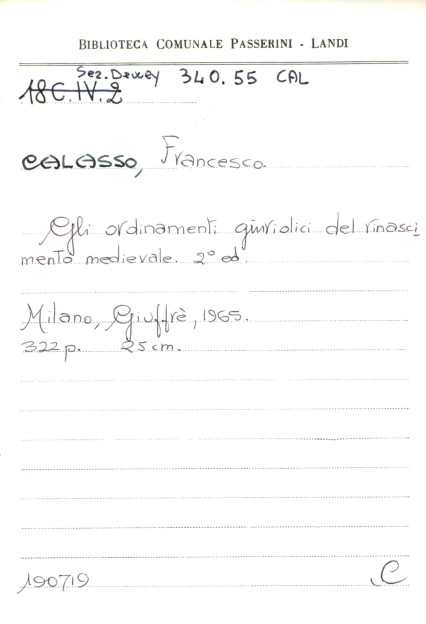 BIBLIOTECA COMUNALE PASSERINI - LANDI
Sez. Dewey 340.55 CAL
18 C.IV.2
CALASSO, Francesco.
Gli ordinamenti giuridici del rinasci
mento medievale. 2° ed.
Milano, Giuffrè, 1965.
322 p. 25 cm.
190719 C